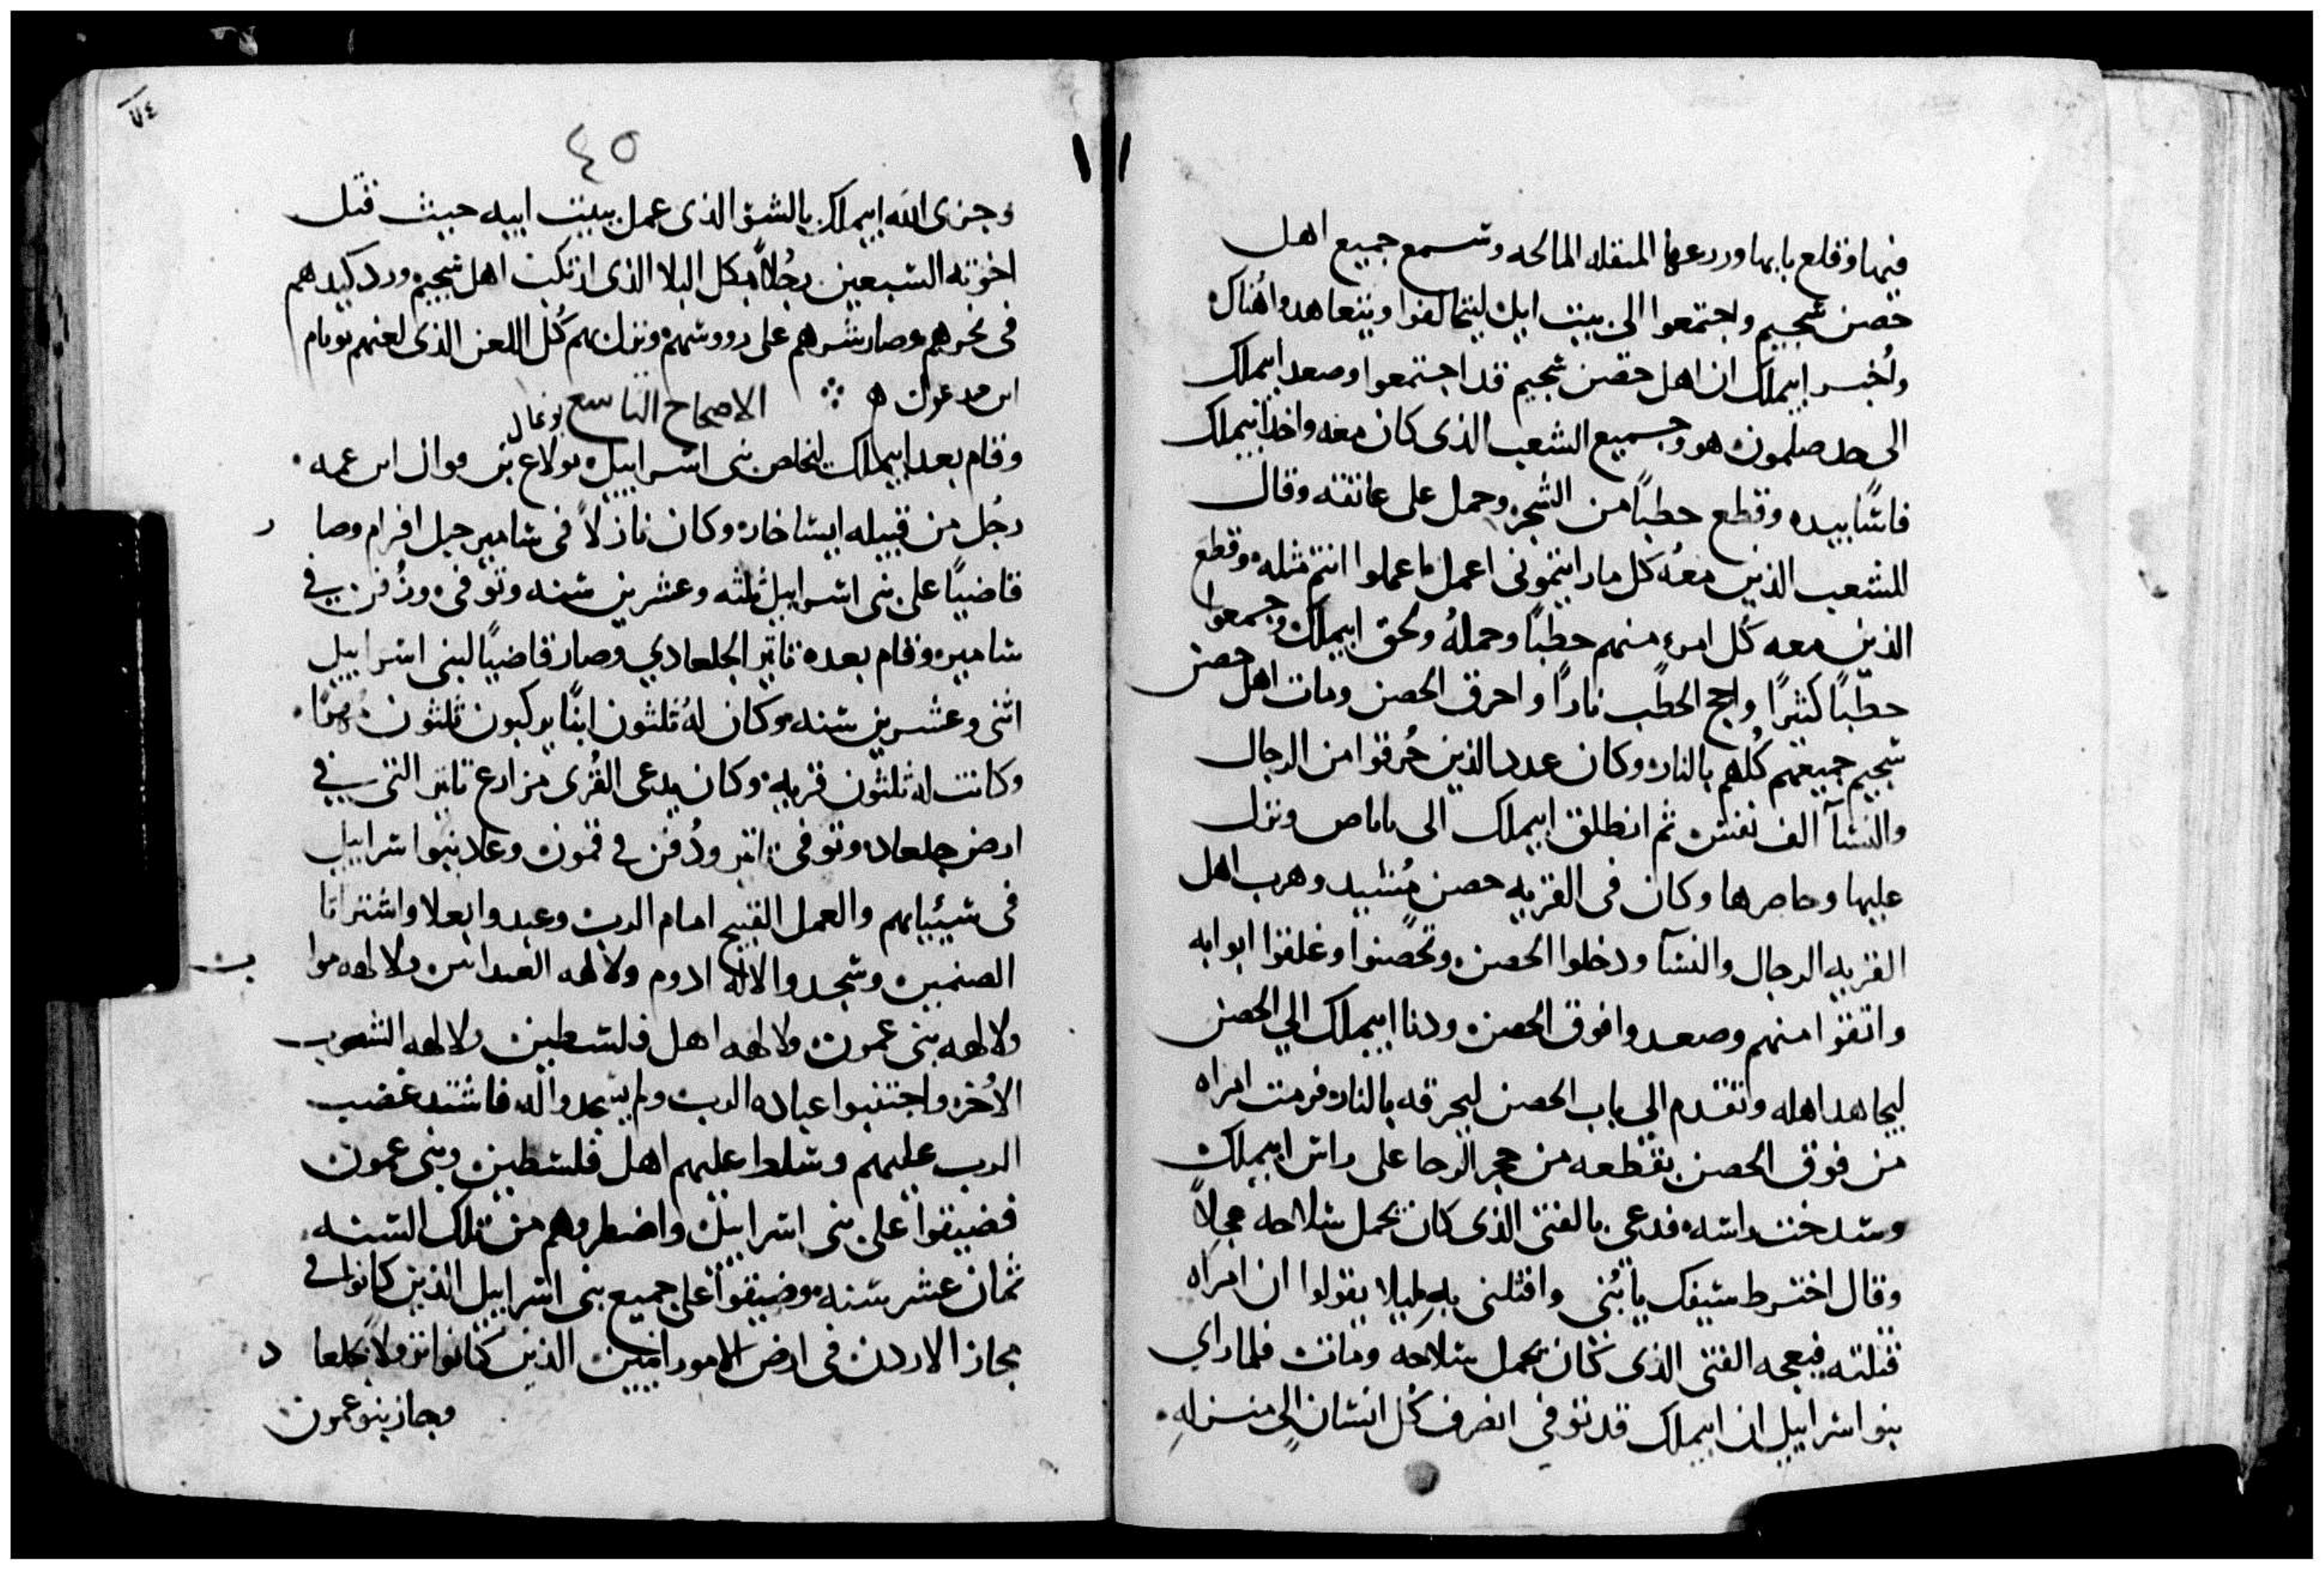 فيها وقلع بابها وردعها المنقله المالحه وسمع جميع اهل
حصن شجيم واجتمعوا الى بيت ايل ليتحالفوا ويتعاهدوا هُناك
واُخبر ابيملك ان اهل حصن شجيم قد اجتمعوا وصعد ابيملك
الى حد صلمون هو وجميع الشعب الذى كان معه واخذ ابيملك
فاسًا بيده وقطع حطبًا من الشجر وحمل على عاتقه وقال
للشعب الذين معهُ كل ما رايتمونى اعمل ما عملوا انتم مثله وقطع
الذين معه كُل امرء منهم حطبًا وحملهُ ولحق ابيملك وجمعوا
حطبًا كثيرًا واجج الحطب نارًا واحرق الحصن ومات اهل حصن
شجيم جميعهم كُلهم بالنار وكان عدد الذين حُرقوا من الرجال
والنسآ الف نفس ثم انطلق ابيملك الى باباص ونزل
عليها وحاصرها وكان فى القريه حصن مُشيد وهرب اهل
القريه الرجال والنسآ ودخلوا الحصن وتحصنوا وغلقوا ابوابه
واتقوا منهم وصعدوا فوق الحصن ودنا ابيملك الي الحصن
ليجاهد اهله وتقدم الى باب الحصن ليحرقه بالنار فرمت امراه
من فوق الحصن بقطعه من حجر الرحا على راس ابيملك
وشدخت راسه فدعى بالفتى الذى كان يحمل سلاحه عجلاً
وقال اخترط سيفك يا بُنى واقتلنى به ليلا يقولوا ان امراه
قتلته فبعجه الفتى الذى كان يحمل سلاحه ومات فلما راي
بنو اسراييل ان ابيملك قد توفى انصرف كُل انسان الى منزله
٧٤
٤٥
وجزى الله ابيملك بالشق الذى عمل ببيت ابيه حيث قتل
اخوته السبعين رجُلاً وكل البلا الذى ارتكب اهل شجيم ورد كيدهم
فى نحرهم وصار شرهم على رووسهم ونزل بهم كُل اللعن الذى لعنهم يوىام
ابن الاصحاح التاسع
وقام بعد ابيملك لخلاص بنى اسراييل بولاع بن فوال ابن عمه
رجُل من قبيله ايساخار وكان نازلاً فى شامير جبل افرام وصا ر
قاضيًا على بنى اسراييل ثلثه وعشرين سنه وتوفى ودُفن في
شامير وقام بعده ناتير الجلعادي وصار قاضيًا لبنى اسراييل
اثنى وعشرين سنه وكان لهُ ثلثون ابنًا يركبون ثلثون
وكانت له ثلثون قريه وكان يدعى القُرى مزارع ناتير التى في
ارض جلعاد وتوفى ناتير ودُفن في قمون وعاد بنوا اسراييل
فى سيياتهم والعمل القبيح امام الرب وعبدوا بعلا واشتراتا
الصنمين وسجدوا لاله ادوم ولالهه الصيدانين ولالهه موا ب
ولالهه بنى عمون ولالهه اهل فلسطين ولالهه الشعوب
الاُخر واجتنبوا عباده الرب ولم يسجدوا له فاشتد غضب
الرب عليهم وسلط عليهم اهل فلسطين وبنى عمون
فضيقوا على بنى اسراييل واضطروهم من تلك السنه
ثمان عشر سنه وضيقوا على جميع بنى اسراييل الذين كانوا في
مجاز الاردن فى ارض الامورانيين الذين كانوا نزولاً بجلعا د
وجاز بنو عمون